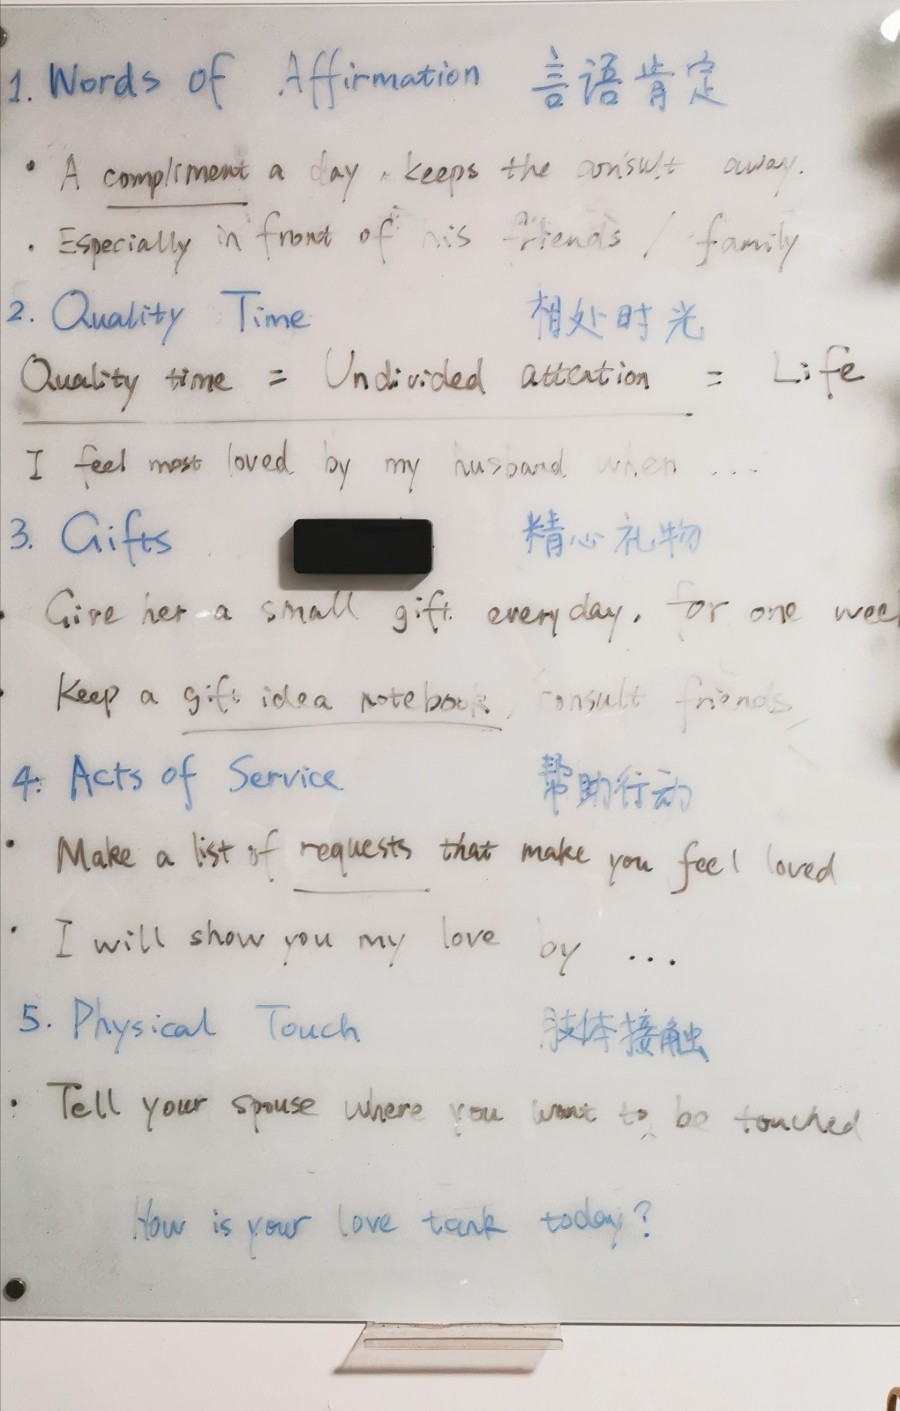 1. Words of Affirmation 言语肯定
· A compliment a day, keeps the away.
· Especially in front of his friends / family
2. Quality Time 相处时光
Quality time = Undivided attention = Life
I feel most loved by my husband when ...
3. Gifts 精心礼物
· Give her a small gift everyday, for one week
· Keep a gift idea notebook, consult friends
4. Acts of Service 帮助行动
· Make a list of requests that make you feel loved
· I will show you my love by ...
5. Physical Touch 肢体接触
· Tell your spouse where you want to be touched
How is your love tank today?